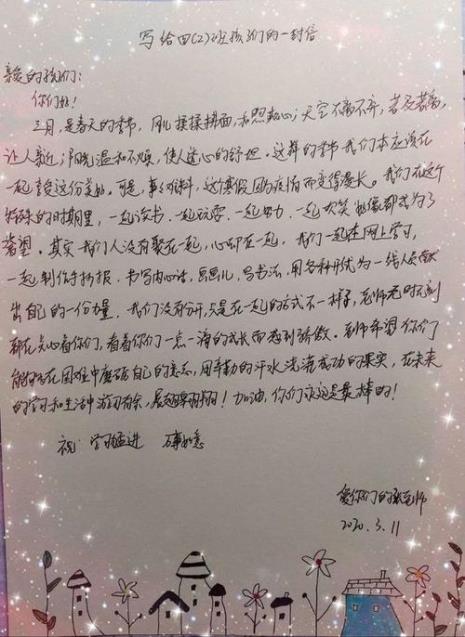 写给四(2)班孩子们的一封信
亲爱的孩子们:
你们好!
三月,是春天的季节,风儿揉揉拂面,和煦贴心;天空不离不弃,若及若离,
让人亲近;阳光温和不燥,使人连心的舒坦。这样的季节我们本应该在
一起享受这份美好。可是,事与愿料,这个寒假因为疫情而变得漫长。我们在这个
特殊的时期里,一起读书、一起玩耍、一起努力、一起欢笑 都成为了
奢望。其实我们人没有聚在一起,心却在一起,我们一起在网上学习,
一起制作手抄报、书写内心话、画画儿、写书法,用各种形式为一线人员献
出自己的一份力量,我们没有分开,只是在一起的方式不一样了,老师老时时刻刻
都在关心着你们,看着你们一点一滴的成长而感到骄傲。老师希望你们
能够在困难中磨砺自己的意志,用辛勤的汗水浇灌成功的果实,在未来
的学习和生活中游刃有余,展翅翱翔!加油,你们永远是最棒的!
祝:学习猛进 万事如意
爱你们的 老师
2020.3.11